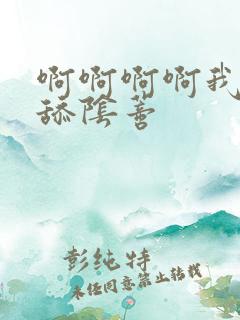 啊啊啊啊我
舔陰蒂
彭纯特
未经同意禁止转载